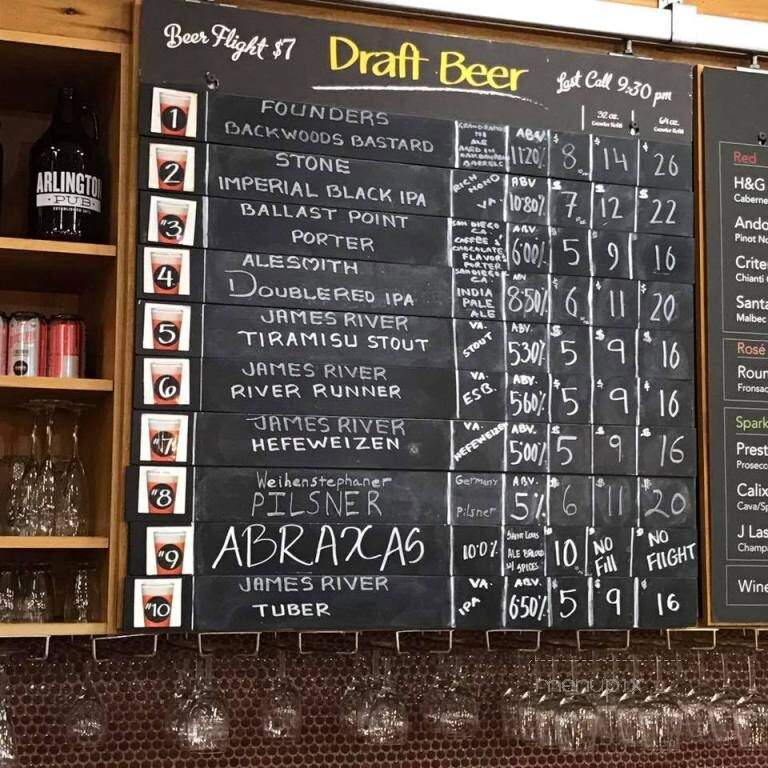 Beer Flight $7
Draft Beer
Last Call 9:30 pm
32 oz.
Growler Refill
64 oz.
Growler Refill
1
FOUNDERS
BACKWOODS BASTARD
MI
ALE
AGED IN
BARRELS
ABV
11.20%
$8
$14
$26
2
STONE
IMPERIAL BLACK IPA
RICHMOND
VA.
ABV
10.80%
$7
$12
$22
#3
BALLAST POINT
PORTER
SAN DIEGO
CA.
COFFEE &
CHOCOLATE
FLAVOR
PORTER
ABV.
6.00%
$5
9
16
4
ALESMITH
DOUBLERED IPA
SAN DIEGO
CA.
INDIA
PALE
ALE
ABV
8.50%
$6
$11
$20
5
JAMES RIVER
TIRAMISU STOUT
VA.
STOUT
ABV.
5.30%
$5
$9
$16
6
JAMES RIVER
RIVER RUNNER
VA.
ESB.
ABV.
5.60%
$5
$9
$16
#7
JAMES RIVER
HEFEWEIZEN
VA.
HEFEWEIZEN
ABV.
5.00%
$5
$9
$16
#8
Weihenstephaner
PILSNER
Germany
Pilsner
ABV.
5%
$6
$11
$20
#9
ABRAXAS
10.0%
SAINT LOUIS
ALE BREWED
W/ SPICES
$10
NO
Fill
NO
FlIGHT
#10
JAMES RIVER
TUBER
VA.
IPA
ABV.
6.50%
$5
$9
$16
ARLINGTON
PUB
Red
H&G
Caberne
Ando
Pinot No
Crite
Chianti
Santa
Malbec
Rosé
Roun
Fronsac
Spark
Prest
Prosecc
Calix
Cava/Sp
J Las
Champ
Wine
menupix